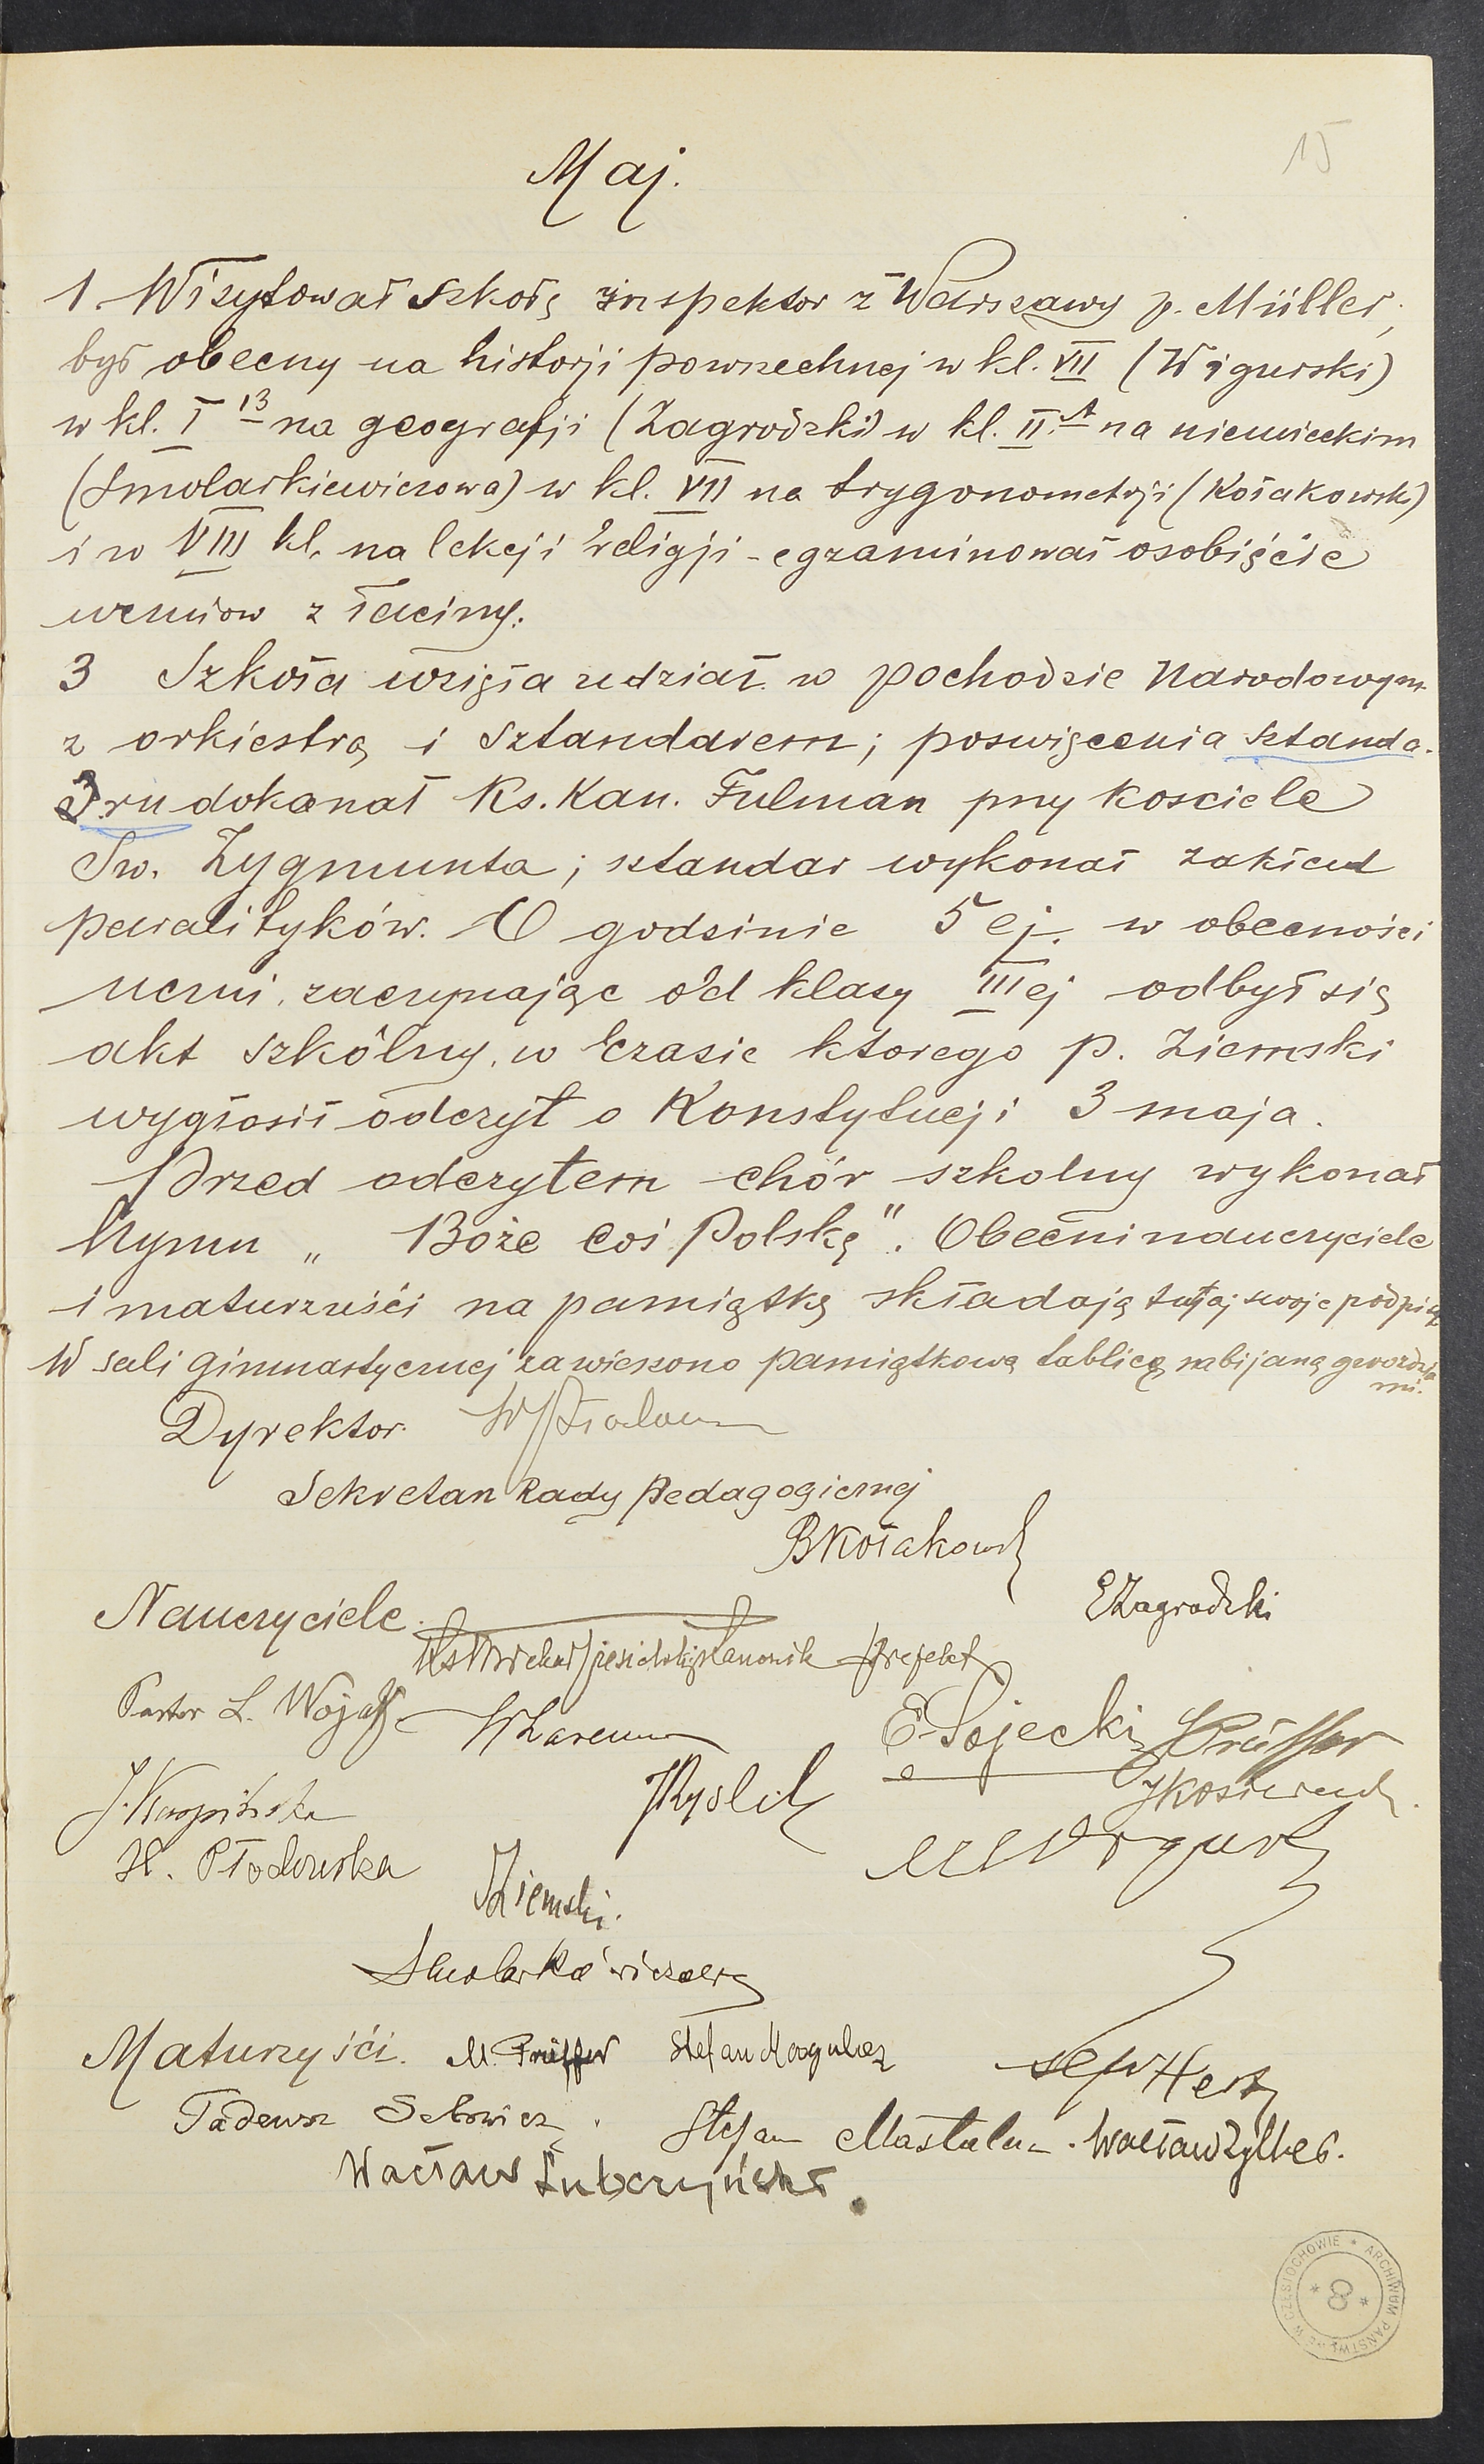 15
Maj.
1. Wizytował szkołę inspektor z Warszawy p. Müller,
był obecny na historji powszechnej w kl. VII (Wigurski)
w kl. I B na geografji (Zagrodzki) w kl. II A na niemieckim
(Smolarkiewiczowa) w kl. VII na trygonometrji (Kołakowski)
i w VIII kl. na lekcji religji - egzaminował osobiście
uczniow z łaciny.
3 Szkoła wzięła udział w pochodzie Narodowym
z orkiestrą i sztandarem; poswięcenia sztanda-
ru dokonał Ks. Kan. Fulman przy kosciele
Św. Zygmunta; sztandar wykonał zakład
paralityków. O godzinie 5 ej. w obecności
uczni, zaczynając od klasy III ej odbył się
akt szkolny, w czasie ktorego p. Ziemski
wygłosił odczyt o Konstytucji 3 maja.
Przed odczytem chór szkolny wykonał
hymn „Boże coś Polskę". Obecni nauczyciele
i maturzyści na pamiątkę składają tutaj swoje podpisy
W sali gimnastycznej zawieszono pamiątkową tablicę nabijaną gwozdzia
mi.
Dyrektor
Sekretarz Rady Pedagogicznej
BKołakowski
EZagrodzki
Nauczyciele.
Kanonik Prefekt
Pastor L. Wojak
E. Sojecki Prüffer
J. Karpińska
H. Płodowska
Ziemski.
Smolarkiewiczowa
Maturzyści. M. Prüffer Stefan
Hertz
Tadeusz
Stefan Mastalerz. Wacław Zylber.
Wacław Łubczyński.
ARCHIWUM PAŃSTWOWE W CZĘSTOCHOWIE
8